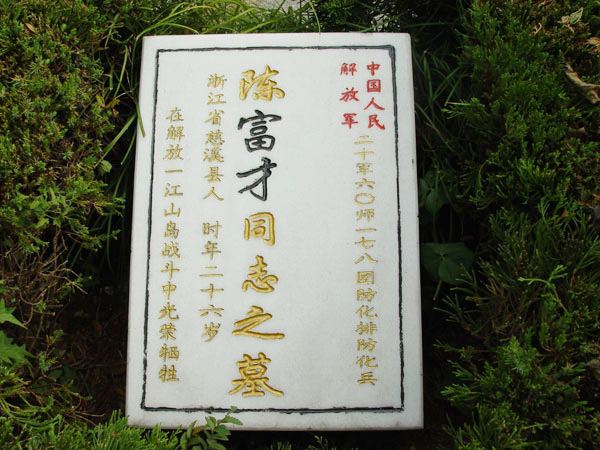 中国人民
解放军
二十军六〇师一七八团防化排防化兵
陈富才同志之墓
浙江省慈溪县人 时年二十六岁
在解放一江山岛战斗中光荣牺牲